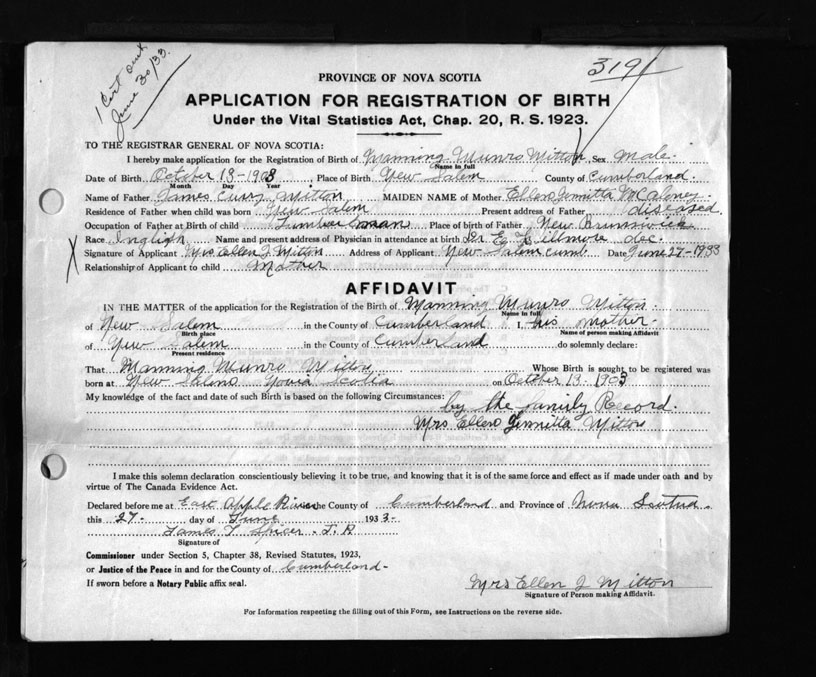 1 Cert sent
June 30/33.
3191
PROVINCE OF NOVA SCOTIA
APPLICATION FOR REGISTRATION OF BIRTH
Under the Vital Statistics Act, Chap. 20, R. S. 1923.
TO THE REGISTRAR GENERAL OF NOVA SCOTIA:
I hereby make application for the Registration of Birth of Manning Munro Mitton, Sex Male.
Name in full
Date of Birth October 13-1903 Place of Birth New Salem County of Cumberland.
Month Day Year
Name of Father James Curry Mitton MAIDEN NAME of Mother Ellen Jennitta McAloney
Residence of Father when child was born New Salem Present address of Father diseased
Occupation of Father at Birth of child Lumberman Place of birth of Father New Brunswick
Race Inglish Name and present address of Physician in attendance at birth Dr E Fillmore dec.
X Signature of Applicant Mrs Ellen J Mitton Address of Applicant New Salem Cumb Date June 27-1933
Relationship of Applicant to child Mother
AFFIDAVIT
IN THE MATTER of the application for the Registration of the Birth of Manning Munro Mitton.
Name in full
of New Salem in the County of Cumberland I, his mother.
Birth place Name of person making Affidavit
of New Salem in the County of Cumberland do solemnly declare:
Present residence
That Manning Munro Mitton Whose Birth is sought to be registered was
born at New Salem Nova Scotia on October 13-1903
My knowledge of the fact and date of such Birth is based on the following Circumstances:
by the family Record.
Mrs Ellen Jennitta Mitton
I make this solemn declaration conscientiously believing it to be true, and knowing that it is of the same force and effect as if made under oath and by
virtue of The Canada Evidence Act.
Declared before me at East Apple River the County of Cumberland and Province of Nova Scotia.
this 27- day of June 1933-
James T Spicer. J. P
Signature of
Commissioner under Section 5, Chapter 38, Revised Statutes, 1923,
or Justice of the Peace in and for the County of Cumberland-
If sworn before a Notary Public affix seal.
Mrs Ellen J Mitton
Signature of Person making Affidavit.
For Information respecting the filling out of this Form, see Instructions on the reverse side.